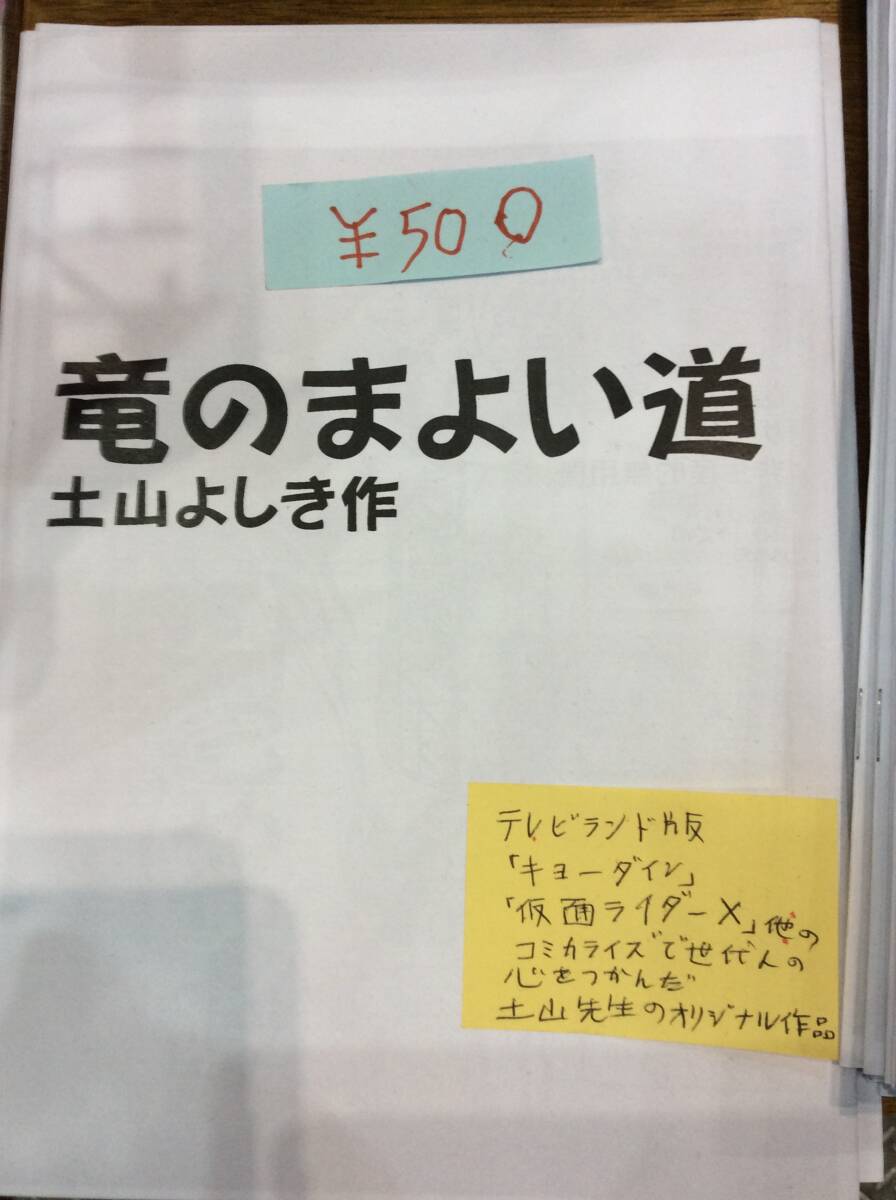 ¥500
竜のまよい道
土山よしき作
テレビランド版
「キョーダイン」
「仮面ライダーX」他の
コミカライズで世代人の
心をつかんだ
土山先生のオリジナル作品